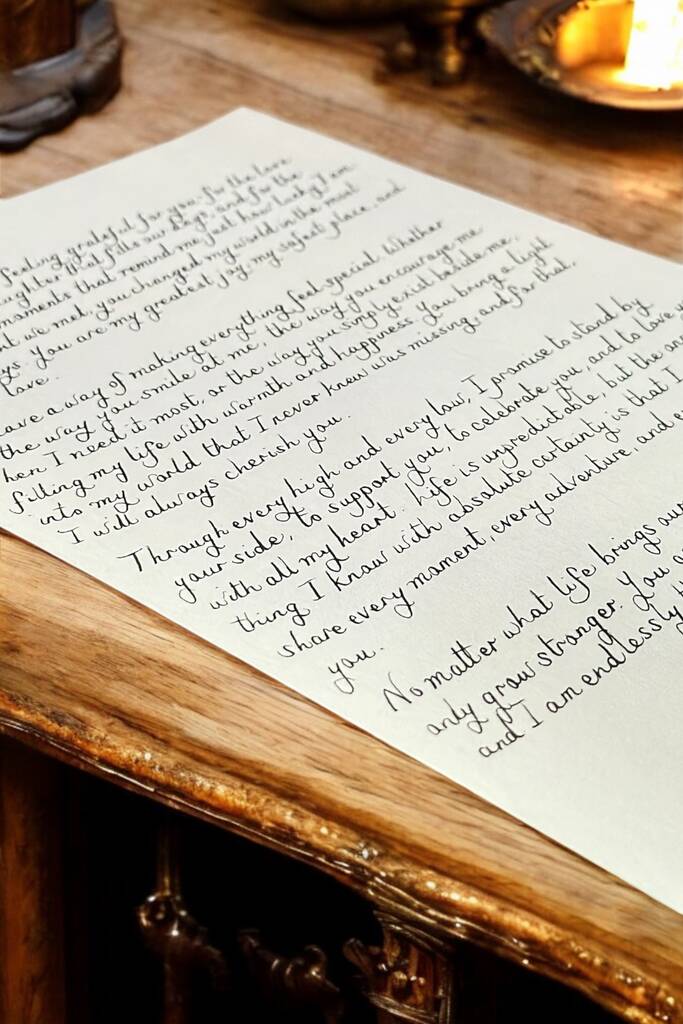 feeling grateful for you for the love
laughter that fills our days, and for the
moments that remind me just how lucky I am
we met, you changed my world in the most
You are my greatest joy, my safest place, and
love.
have a way of making everything feel special. Whether
the way you smile at me, the way you encourage me
when I need it most, or the way you simply exist beside me,
filling my life with warmth and happiness. You bring a light
into my world that I never knew was missing, and for that,
I will always cherish you.
Through every high and every low, I promise to stand by
your side, to support you, to celebrate you, and to love
with all my heart. Life is unpredictable, but the
thing I know with absolute certainty is that I
share every moment, every adventure, and
you.
No matter what life brings
only grow stronger. You
and I am endlessly